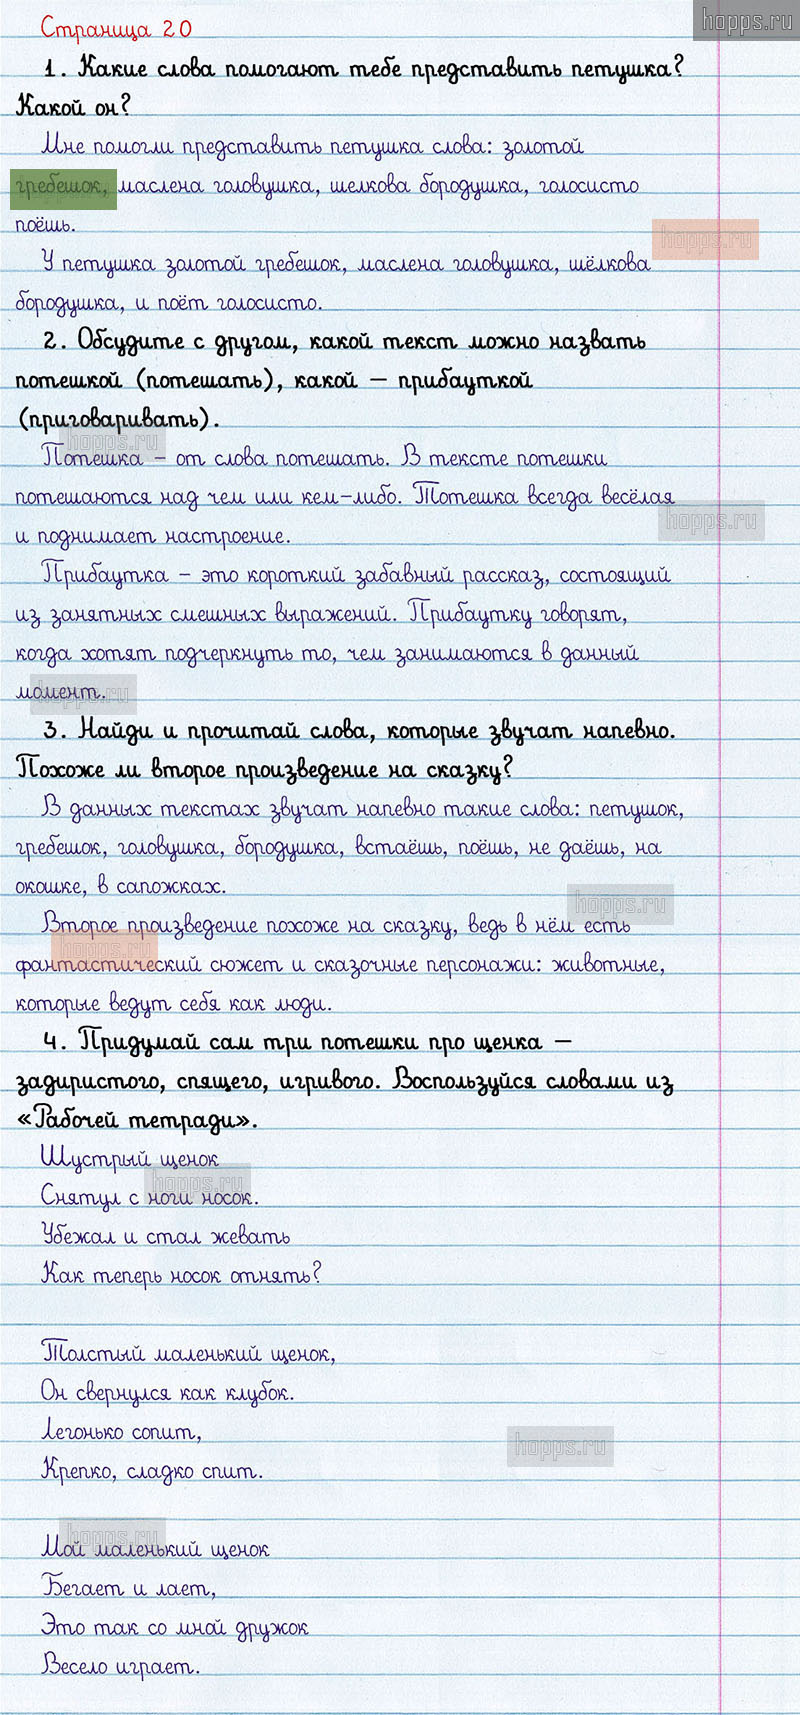 hopps.ru
Страница 20
1. Какие слова помогают тебе представить петушка?
Какой он?
Мне помогли представить петушка слова: золотой
гребешок, маслена головушка, шелкова бородушка, голосисто
поёшь.
hopps.ru
У петушка золотой гребешок, маслена головушка, шёлкова
бородушка, и поёт голосисто.
2. Обсудите с другом, какой текст можно назвать
потешкой (потешать), какой – прибауткой
(приговаривать).
hopps.ru
Потешка – от слова потешать. В тексте потешки
потешаются над чем или кем-либо. Потешка всегда весёлая
hopps.ru
и поднимает настроение.
Прибаутка – это короткий забавный рассказ, состоящий
из занятных смешных выражений. Прибаутку говорят,
когда хотят подчеркнуть то, чем занимаются в данный
момент.
hopps.ru
3. Найди и прочитай слова, которые звучат напевно.
Похоже ли второе произведение на сказку?
В данных текстах звучат напевно такие слова: петушок,
гребешок, головушка, бородушка, встаёшь, поёшь, не даёшь, на
окошке, в сапожках.
hopps.ru
Второе произведение похоже на сказку, ведь в нём есть
hopps.ru
фантастический сюжет и сказочные персонажи: животные,
которые ведут себя как люди.
4. Придумай сам три потешки про щенка –
задиристого, спящего, игривого. Воспользуйся словами из
«Рабочей тетради».
Шустрый щенок
hopps.ru
Снятул с ноги носок.
Убежал и стал жевать
Как теперь носок отнять?
Толстый маленький щенок,
Он свернулся как клубок.
Легонько сопит,
hopps.ru
Крепко, сладко спит.
hopps.ru
Мой маленький щенок
Бегает и лает,
Это так со мной дружок
Весело играет.